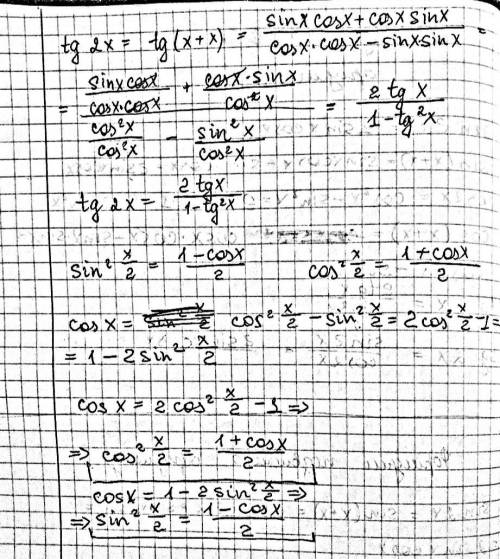 tg 2x = tg(x+x) = (sinx cosx + cosx sinx)/(cosx·cosx − sinx sinx) =
= ((sinx cosx)/(cosx·cosx) + (cosx·sinx)/(cos²x))/((cos²x)/(cos²x) − (sin²x)/(cos²x)) = (2 tg x)/(1 − tg²x)
tg 2x = (2 tgx)/(1 − tg²x)
sin² x/2 = (1 − cosx)/2 cos² x/2 = (1 + cosx)/2
cos x = cos² x/2 − sin² x/2 = 2cos² x/2 − 1 =
= 1 − 2 sin² x/2
cos x = 2 cos² x/2 − 1 ⇒
⇒ cos² x/2 = (1 + cosx)/2
cosx = 1 − 2 sin² x/2 ⇒
⇒ sin² x/2 = (1 − cosx)/2